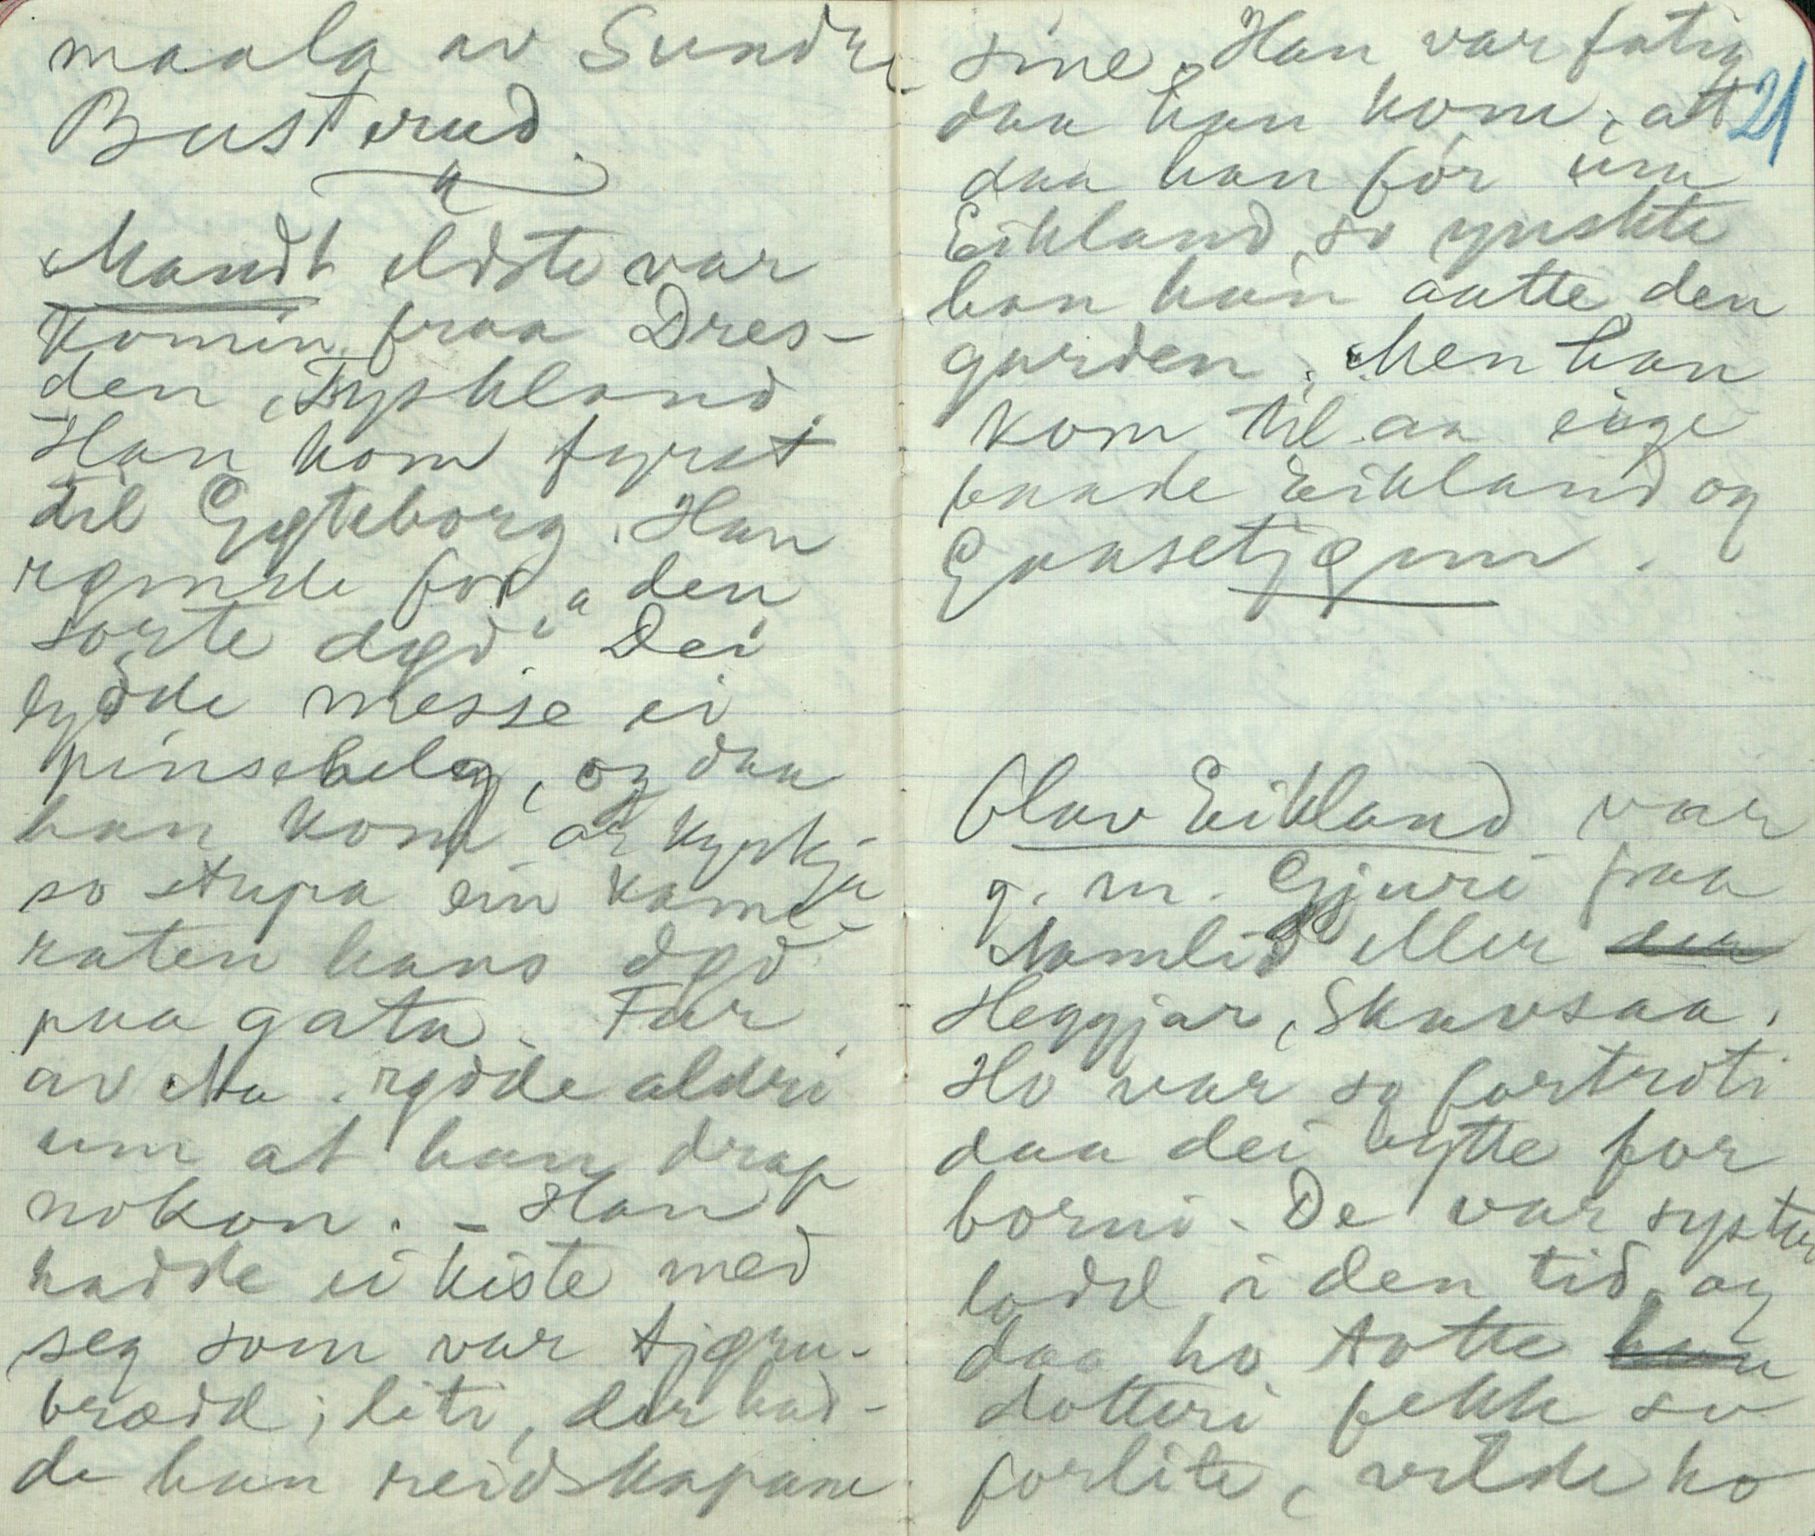 maala av Sundre
Busterud.
Mandt eldste var
komin fraa Dres-
den, Tyskland.
Han kom fyrst
til Gøteborg. Han
rømde for "den
sorte død". Dei
lydde messe ei
pinsehelg, og daa
han kom or kyrkja
so stupa ein kame-
raten hans død
paa gata. Far
av Ma. rødde aldri
um at han drap
nokon. - Han
hadde ei kiste med
seg som var tjøru-
brædd; liti, der had-
de han reidskapane
sine. Han var fatig
21
daa han kom, att
daa han før um
Eikland, so ynskte
han han aatte den
garden. Men han
kom til aa eige
baade Eikland og
Gaasetjønn.
Olav Eikland var
g. m. Gjuri fraa
Namlid eller
Heggjar, Skavsaa.
Ho var so fortroti
daa dei bytte for
borni. De var syster
lodd i den tid, og
daa ho totte
dotteri fekk so
forlite, vilde ho